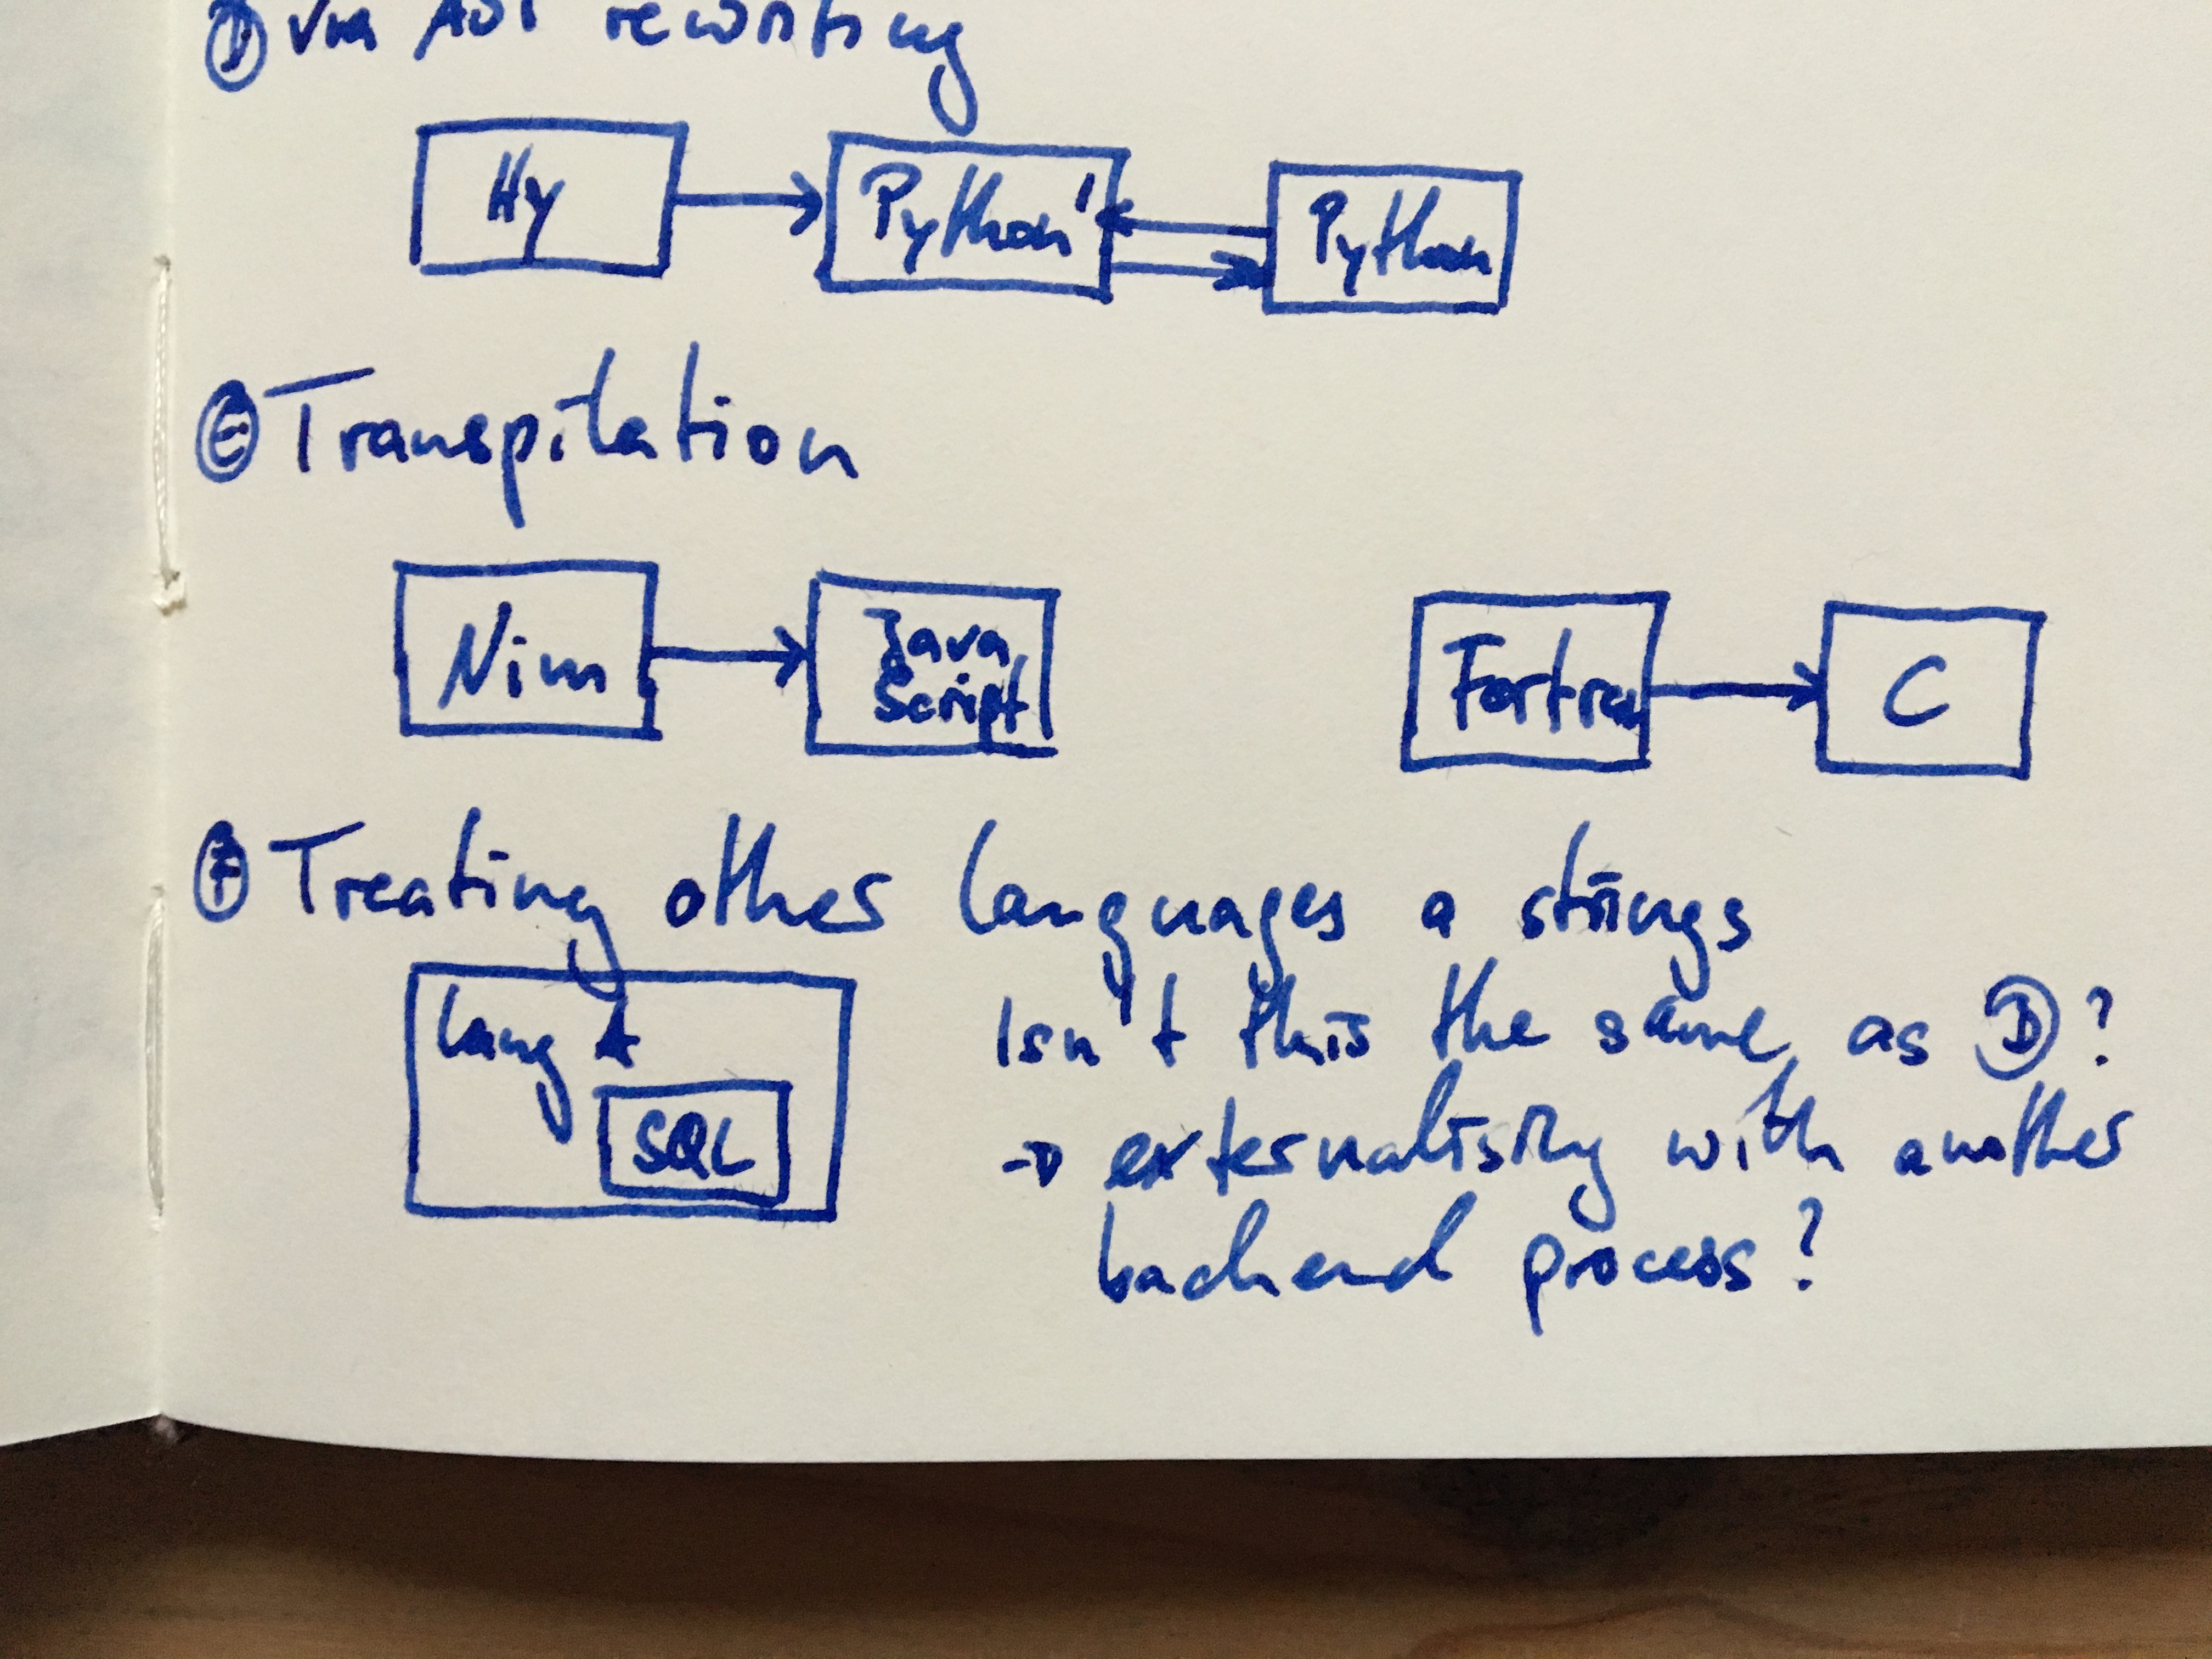 Ⓓ via AST rewriting
Hy → Python' ⇄ Python
Ⓔ Transpilation
Nim → Java Script
Fortran → C
Ⓕ Treating other languages a strings
Lang A
SQL
Isn't this the same as Ⓓ?
→ externalising with another
backend process?